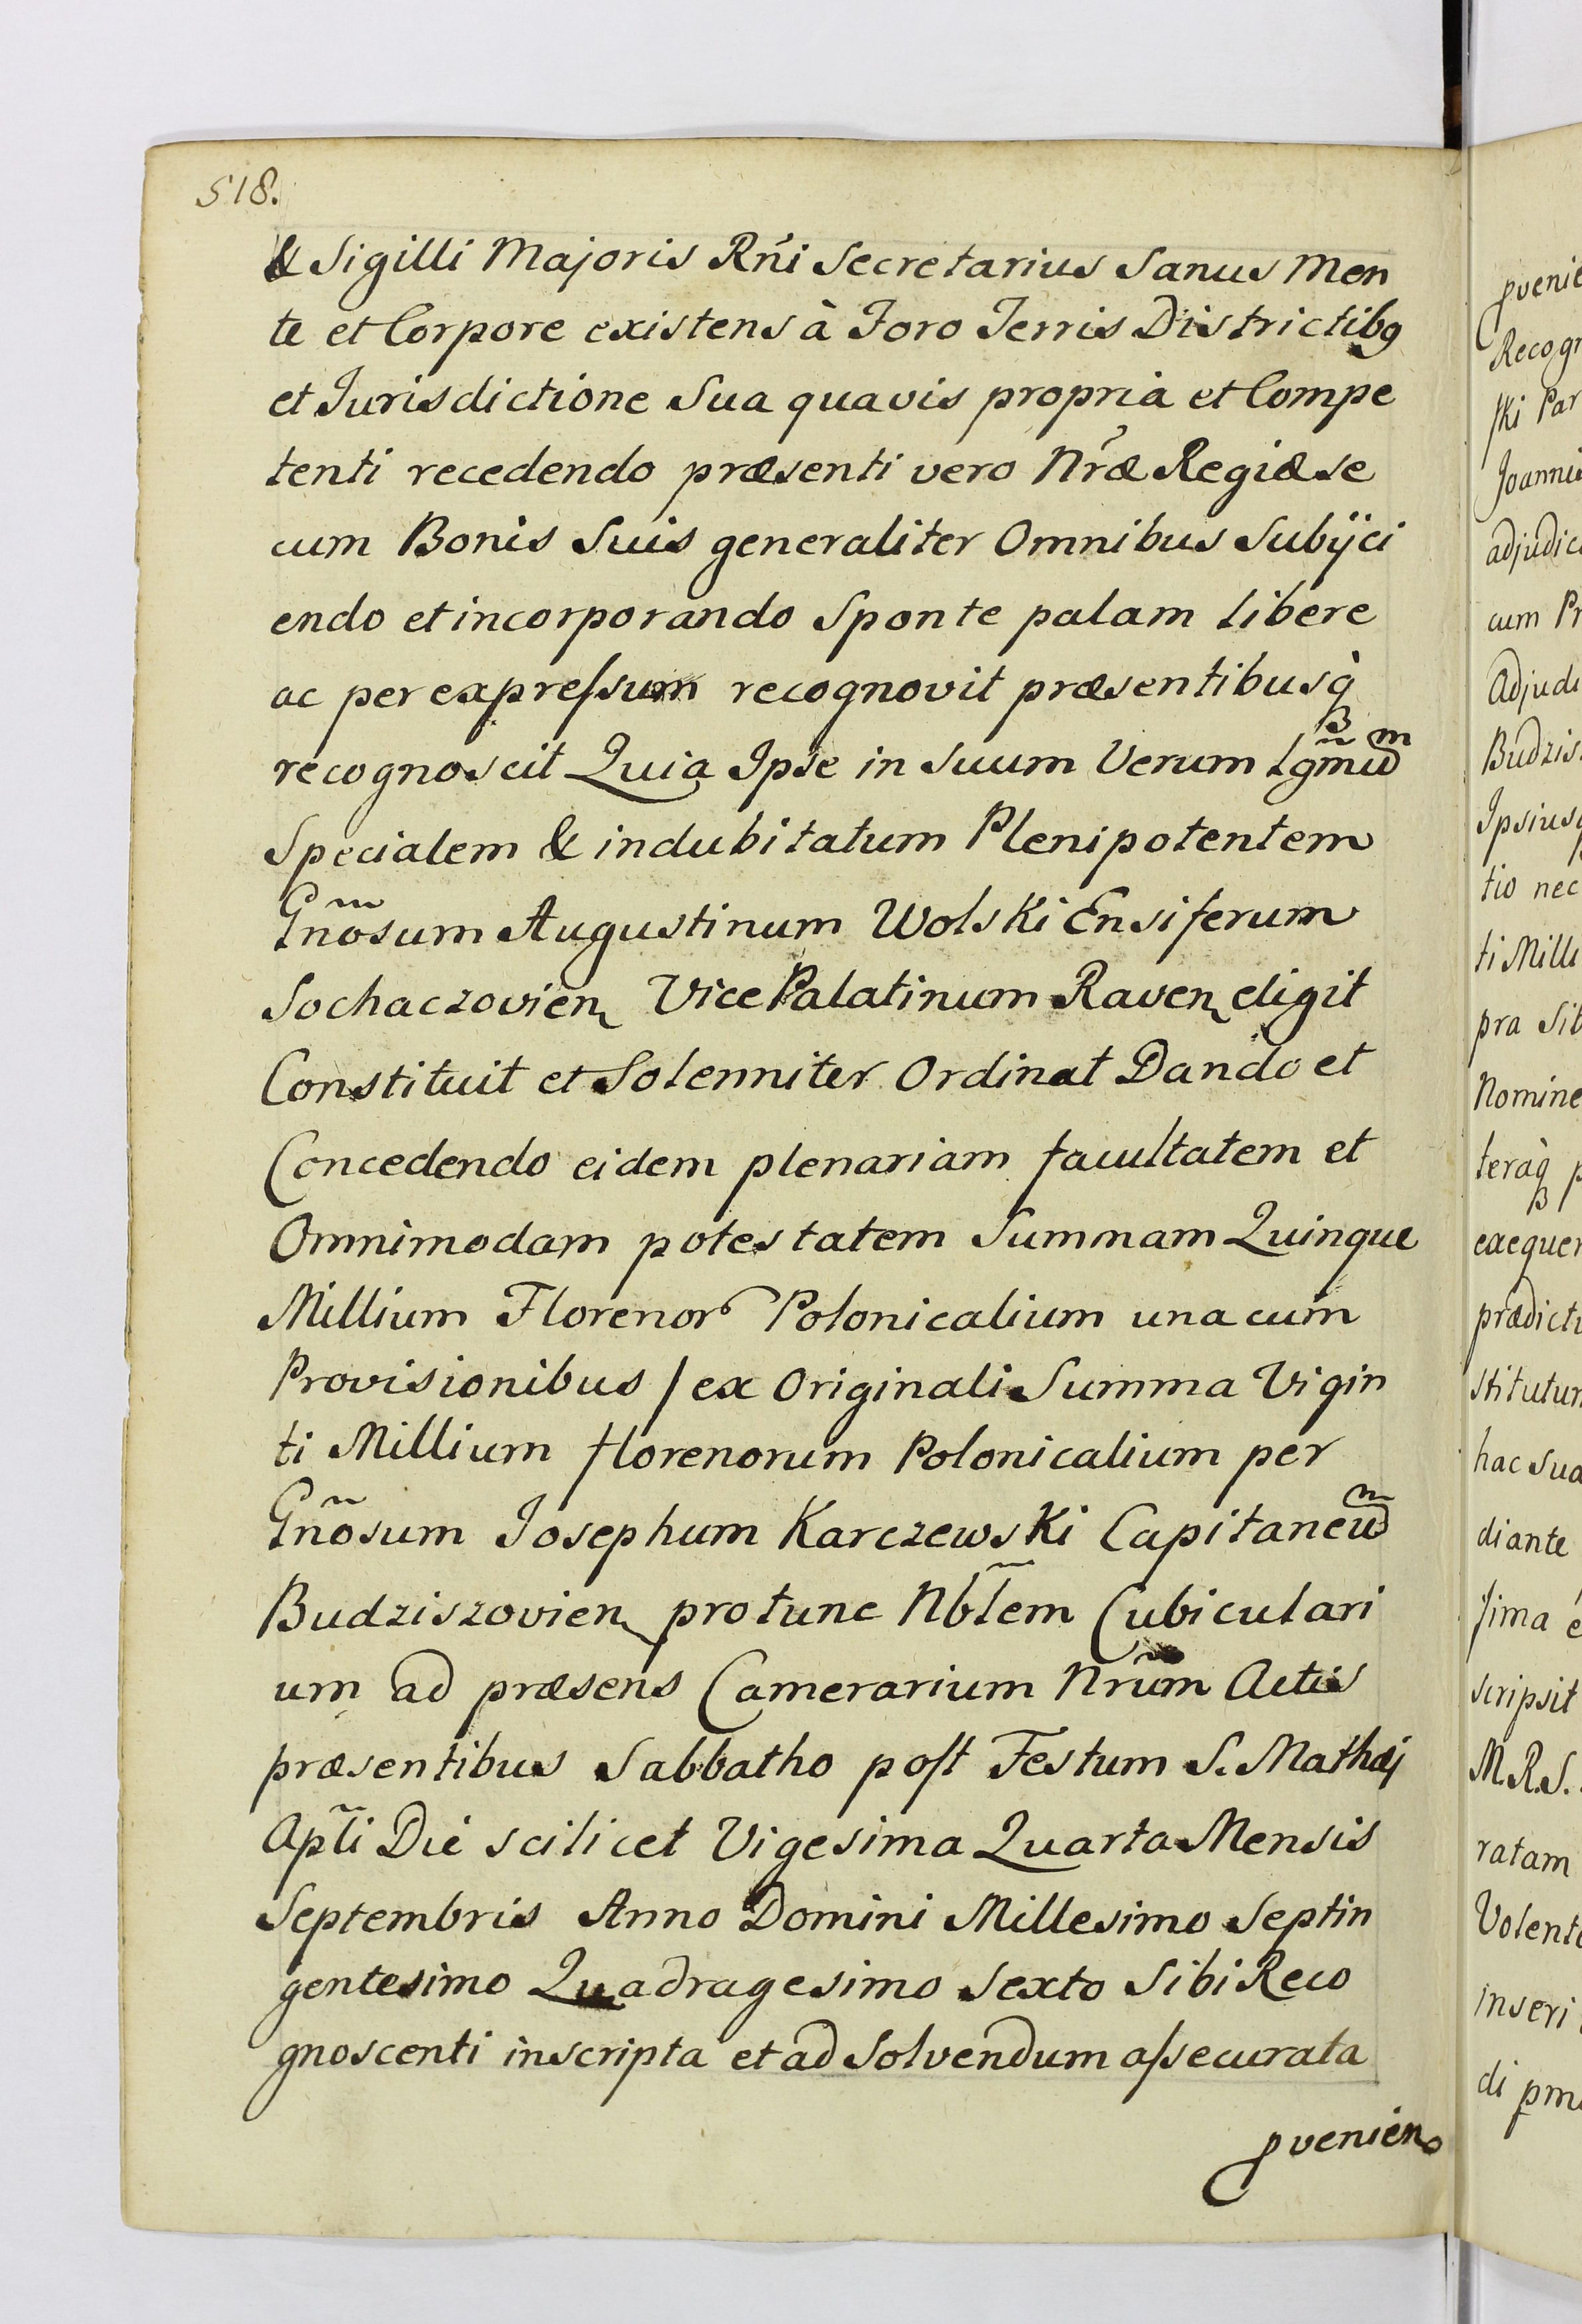 518.
& Sigilli Majoris Rńi Secretarius Sanus Men
te et Corpore existens à Foro Terris Districtibꝯ
et Jurisdictione Sua quavis propria et Compe
tenti recedendo præsenti vero Nr̃æ Regiæ se
cum Bonis Suis generaliter Omnibus Subijci
endo et incorporando Sponte palam libere
ac per expreſsum recognovit præsentibusq̀
recognoscit Quia Ipse in Suum Verum Lgm̃ũ
Specialem & indubitatum Plenipotentem
Gñosum Augustinum Wolski Ensiferum
Sochaczovien Vice Palatinum Raven eligit
Constituit et Solenniter Ordinat Dando et
Concedendo eidem plenariam facultatem et
Omnimodam potestatem Summam Quinque
Millium Florenor Polonicalium una cum
Provisionibus / ex Originali Summa Vigin
ti Millium florenorum Polonicalium per
Gñosum Josephum Karczewski Capitaneũ
Budziszovien protunc Nbl̃em Cubiculari
um ad præsens Camerarium Nr̃um Actis
præsentibus Sabbatho poſt Festum S. Mathæj
Apl̃i Die scilicet Vigesima Quarta Mensis
Septembris Anno Domini Millesimo Septin
gentesimo Quadragesimo Sexto Sibi Reco
gnoscenti inscripta et ad Solvendum aſsecurata
ꝓvenien
ꝓvenie
Recogn
ſki Par
Joannis
adjudic
cum Pr
Adjudi
Budzis
Ipsiusq
tio nec
ti Milli
pra Sib
Nomine
teràq p
exequen
prædict
stitutum
hac sua
diante
ſima é
scripsit
M.R.S.
ratam
Volent
inseri
di pm